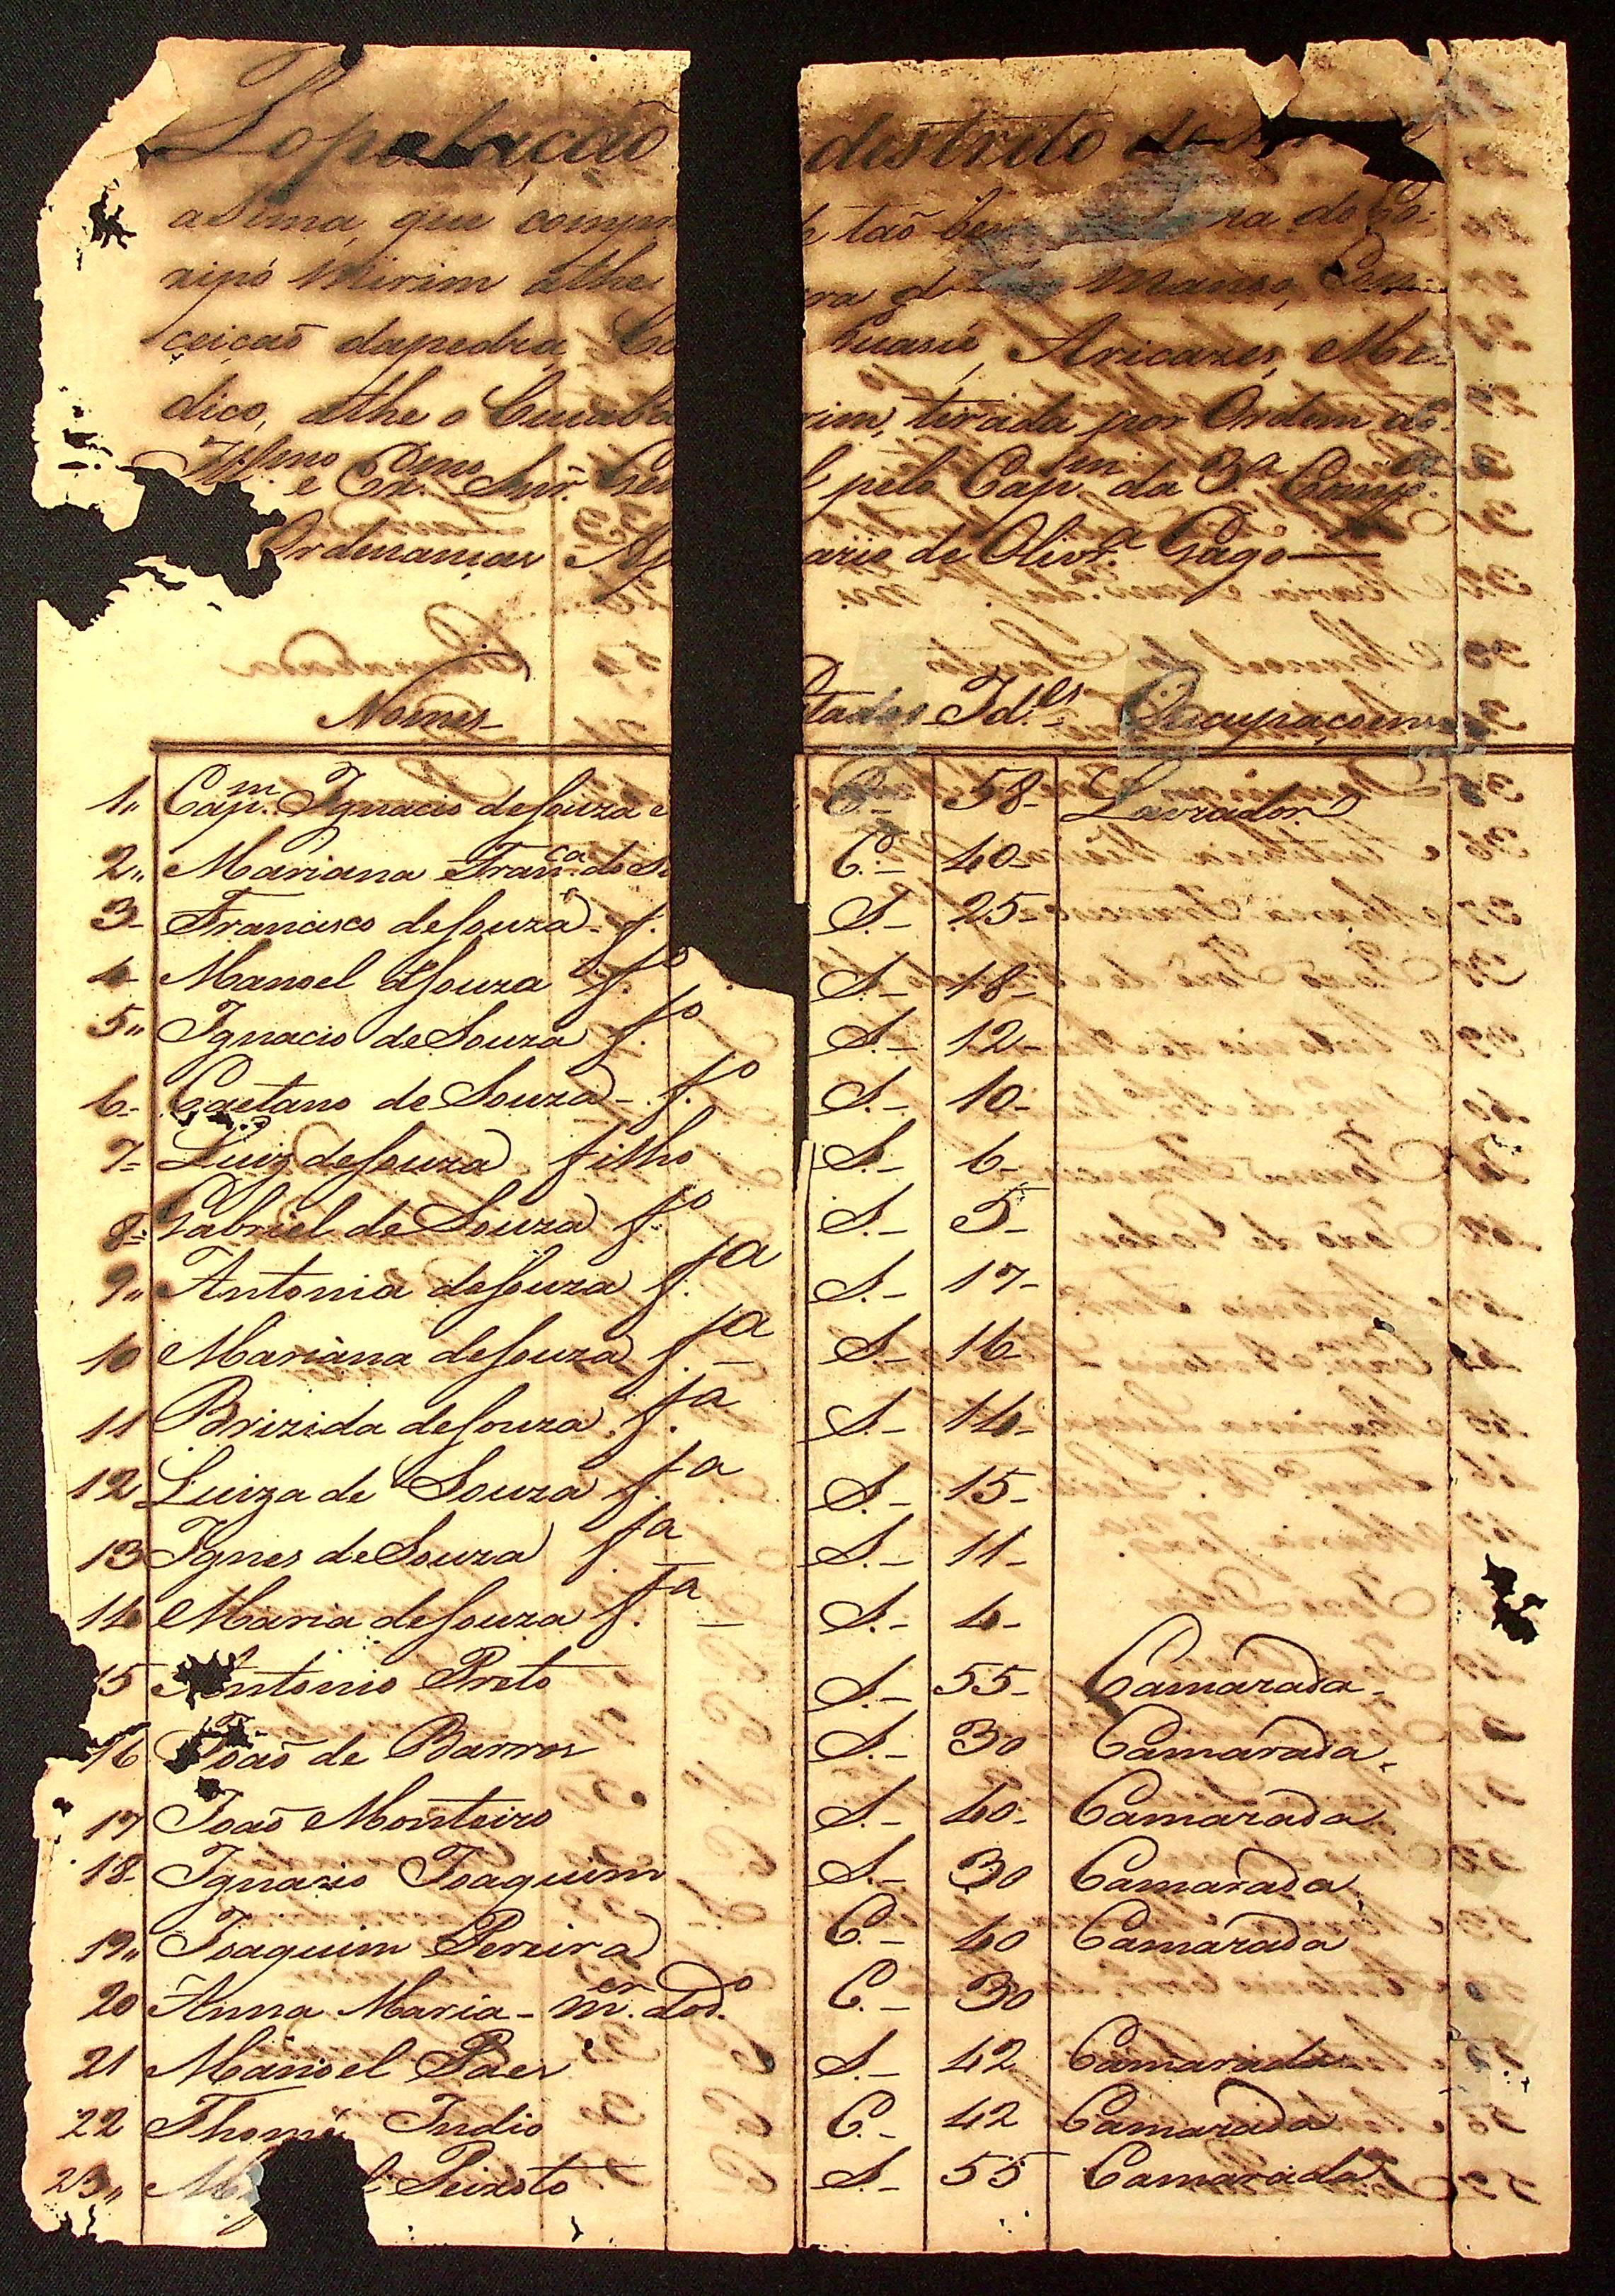 Populaçaõ destrito de
asima, que compr e taõ bem na do Co-
xipó Mirim athe Manso, Con
ceicaõ dapedra, Co Guasú, Aricazes, Me-
dico, athe o Cuiaba rim, tirada por Ordem do
Ill.mo e Ex.mo Snr. Gen l pelo Cap.m da 3.a Comp.a
Ordenanças Ap ario de Olivr.a Gago
Nomes tados Id.es Occupaçoens
1,, Cap.m Ignacio deSouza e C.- 58- Lavrador
2,, Mariana Fran.ca de S C.- 40-
3- Francisco deSouza - f. S.- 25-
4- Manoel deSouza f.o S.- 18-
5,, Ignacio de Souza f.o S.- 12-
6- Caetano de Souza - f.o S.- 10-
7- Luiz deSouza filho S.- 6-
8- Gabriel de Souza f.o S.- 5-
9,, Antonia deSouza f.a S.- 17-
10 Mariana deSouza f.a - S.- 16
11 Brizida deSouza f.a S.- 14-
12 Luiza de Souza f.a S.- 15-
13 Ignes de Souza f.a S.- 11-
14 Maria deSouza f.a - S.- 4-
15 Antonio Preto S.- 55- Camarada-
16 Joaõ de Barros S.- 30 Camarada-
17 Joaõ Monteiro S.- 40- Camarada
18- Ignazio Joaquim S.- 30 Camarada
19,, Joaquim Pereira C.- 40 Camarada
20 Anna Maria - m.er dod.o C.- 30
21 Manoel Paes S.- 42 Camarada
22 Thomé Indio C.- 42 Camarada
23,, M l Peixoto S.- 55 Camarada